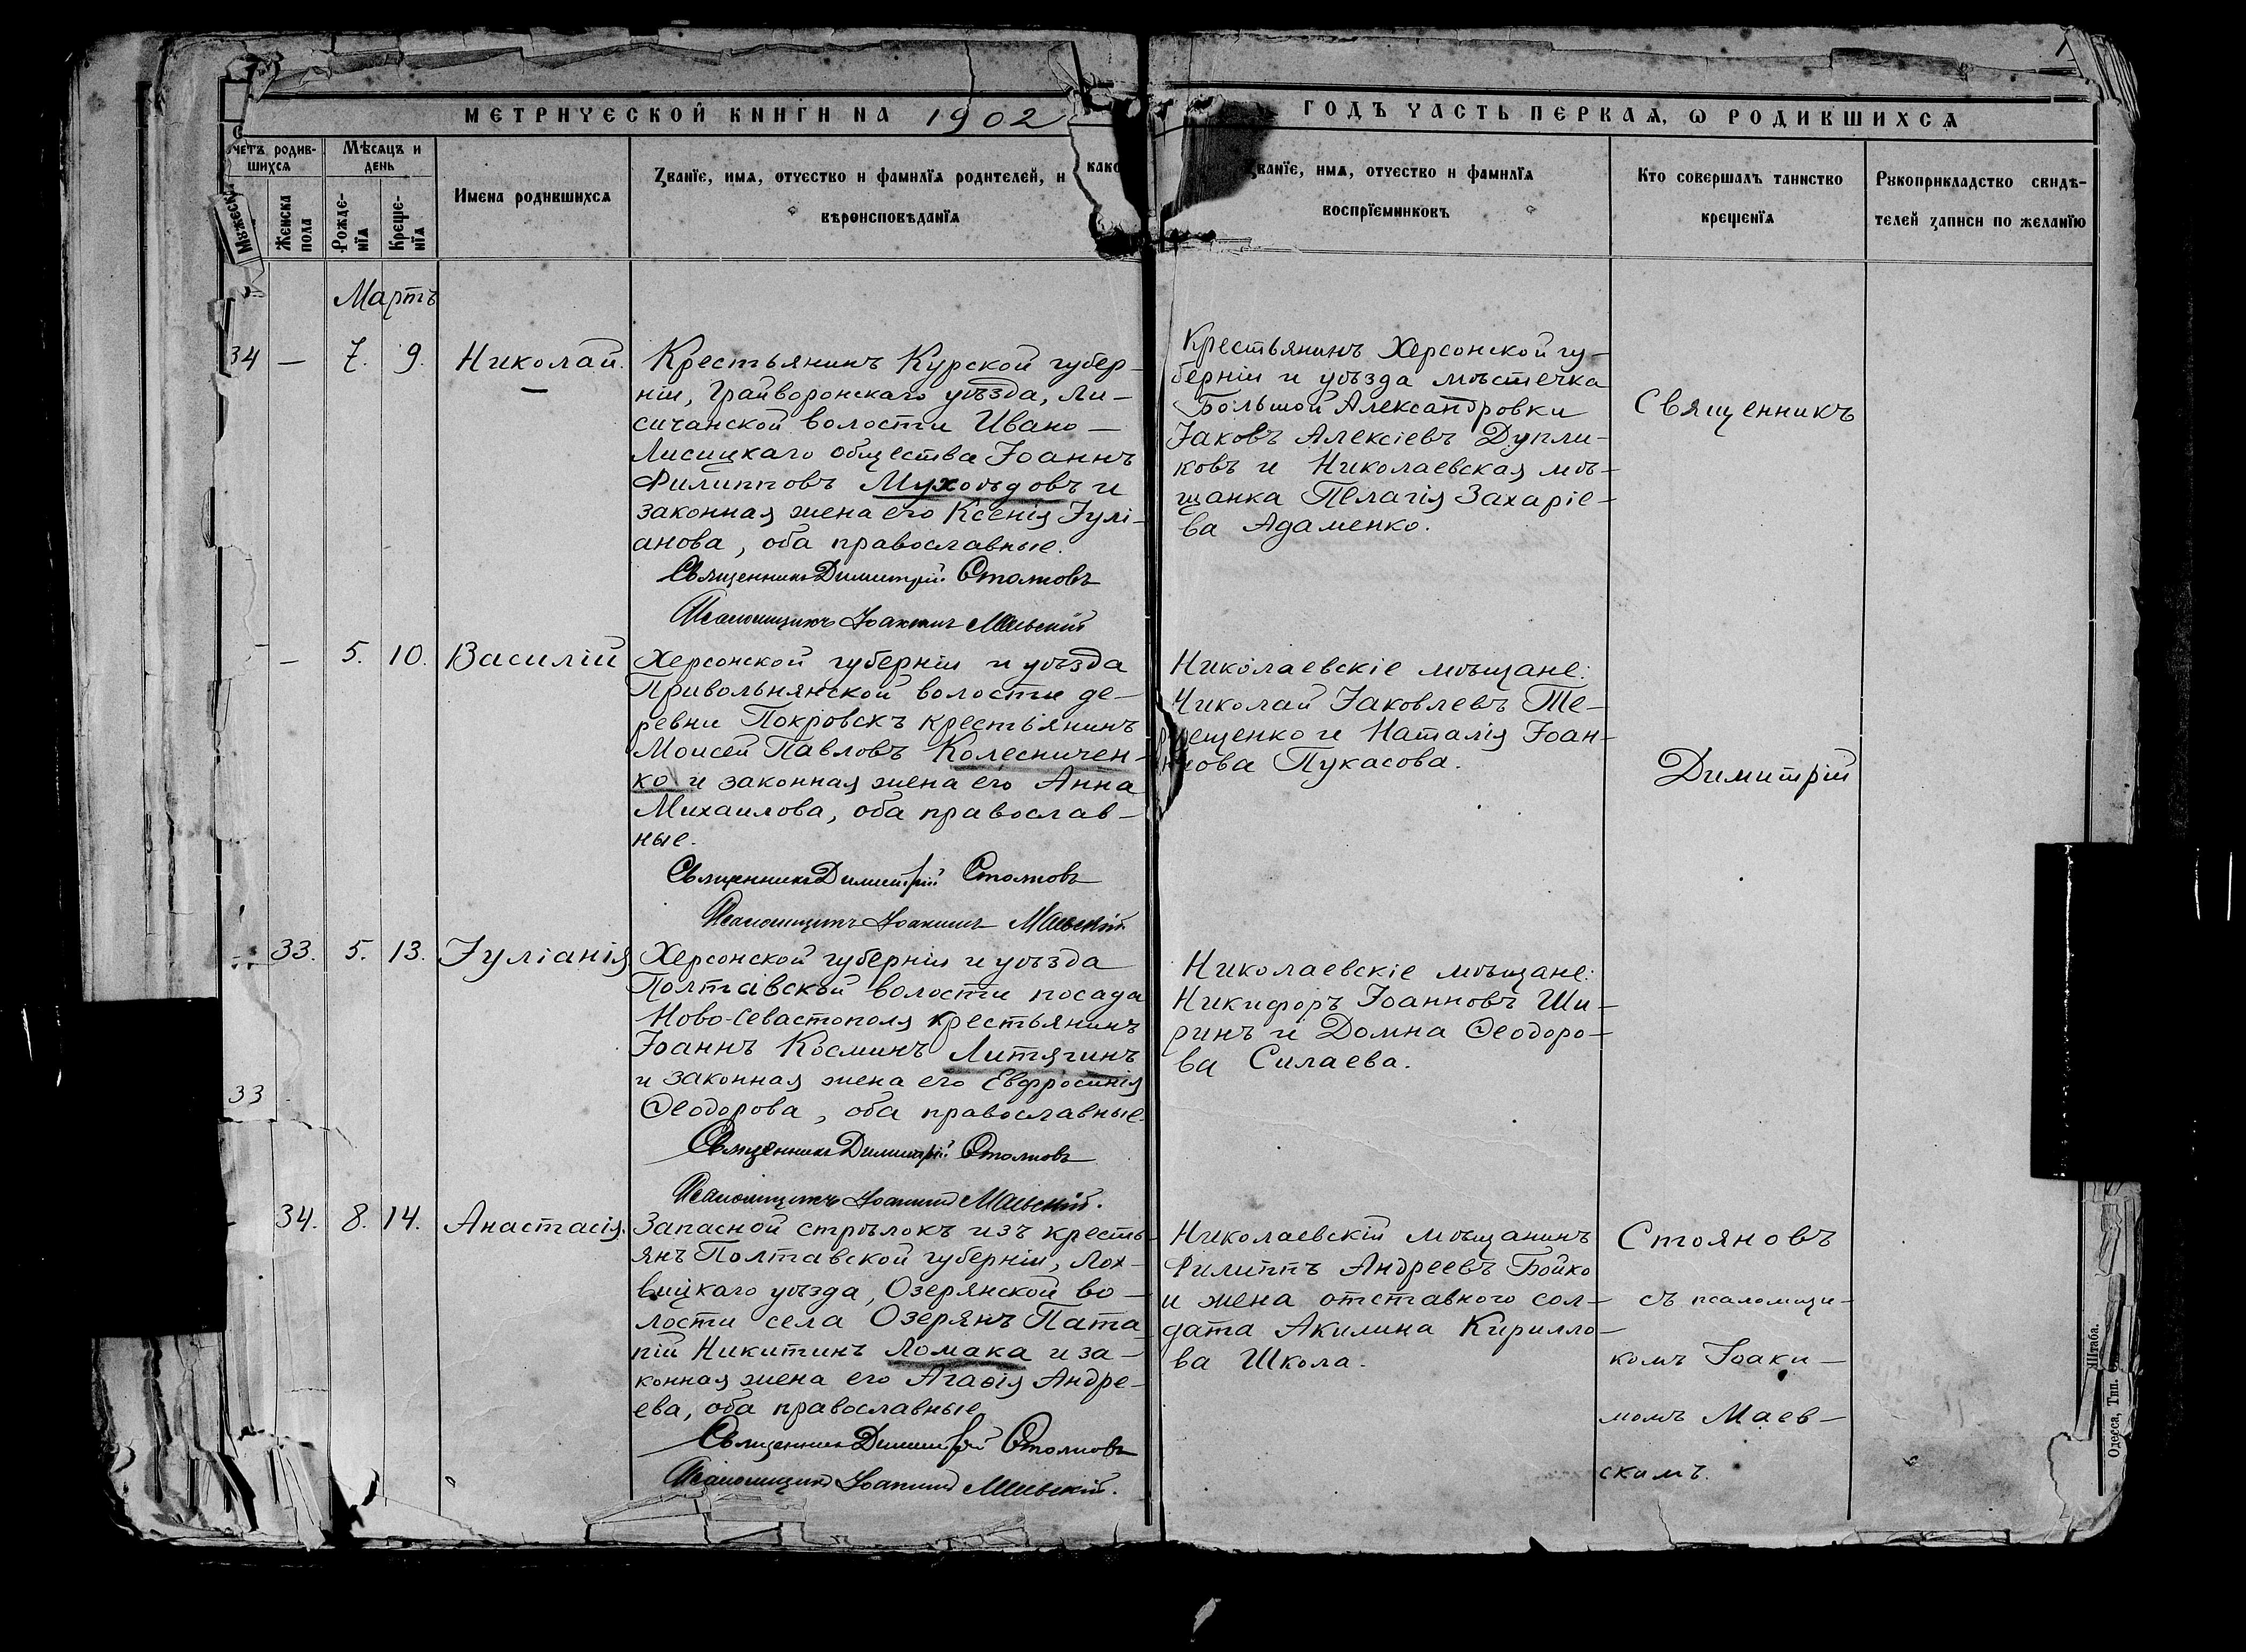 МЕТРИЧЕСКОЙ КНИГИ НА 1902
ГОДЪ ЧАСТЬ ПЕРВАЯ, Ѡ РОДИВШИХСЯ
четъ родив-
шихся
Мѣсяцъ и
день
Женска
пола
Рожде-
нїя
Креще-
нїя
Имена родившихся
Званїе, имя, отчество и фамилїя родителей, и како
вѣроисповѣданїя
званїе, имя, отчество и фамилїя
воспрїемниковъ
Кто совершалъ таинство
крещенїя
Рукоприкладство свидѣ-
телей записи по желанїю
Мартъ
34 — 7. 9. Николай.
Крестьянинъ Курской губер-
ніи, Грайворонскаго уѣзда, Ли-
сичанской волости Ивано-
Лисицкаго общества Іоаннъ
Филипповъ Мухоѣдовъ и
законная жена его Ксенія Іулі-
анова, оба православные.
Священникъ Димитрій Стояновъ
Псаломщикъ Іоакимъ Маевскій
Крестьянинъ Херсонской гу-
берніи и уѣзда мѣстечка
Большой Александровки
Іаковъ Алексіевъ Дупли-
ковъ и Николаевская мѣ-
щанка Пелагія Захаріе-
ва Адаменко.
Священникъ
— 5. 10. Василій
Херсонской губерніи и уѣзда
Привольнянской волости де-
ревни Покровскъ крестьянинъ
Моисей Павловъ Колесничен-
ко и законная жена его Анна
Михаилова, оба православ-
ные.
Священникъ Димитрій Стояновъ
Псаломщикъ Іоакимъ Маевскій
Николаевскіе мѣщане:
Николай Іаковлевъ Те-
рещенко и Наталія Іоан-
нова Пукасова.
Димитрій
33. 5. 13. Іуліанія
Херсонской губерніи и уѣзда
Полтавской волости посада
Ново-Севастополя крестьянинъ
Іоаннъ Косминъ Литягинъ
и законная жена его Евфросинія
Ѳеодорова, оба православные.
Священникъ Димитрій Стояновъ
Псаломщикъ Іоакимъ Маевскій.
Николаевскіе мѣщане:
Никифоръ Іоанновъ Ши-
ринъ и Домна Ѳеодоро-
ва Силаева.
33
34. 8. 14. Анастасія.
Запасной стрѣлокъ изъ кресть-
янъ Полтавской губерніи, Лох-
вицкаго уѣзда, Озерянской во-
лости села Озерянъ Пата-
пій Никитинъ Ломака и за-
конная жена его Агаѳія Андре-
ева, оба православные
Священникъ Димитрій Стояновъ
Псаломщикъ Іоакимъ Маевскій.
Николаевскій мѣщанинъ
Филиппъ Андреевъ Бойко
и жена отставного сол-
дата Акилина Кирилло-
ва Школа.
Стояновъ
съ псаломщи-
комъ Іоаки-
момъ Маев-
скимъ.
Одесса, Тип. Штаба.